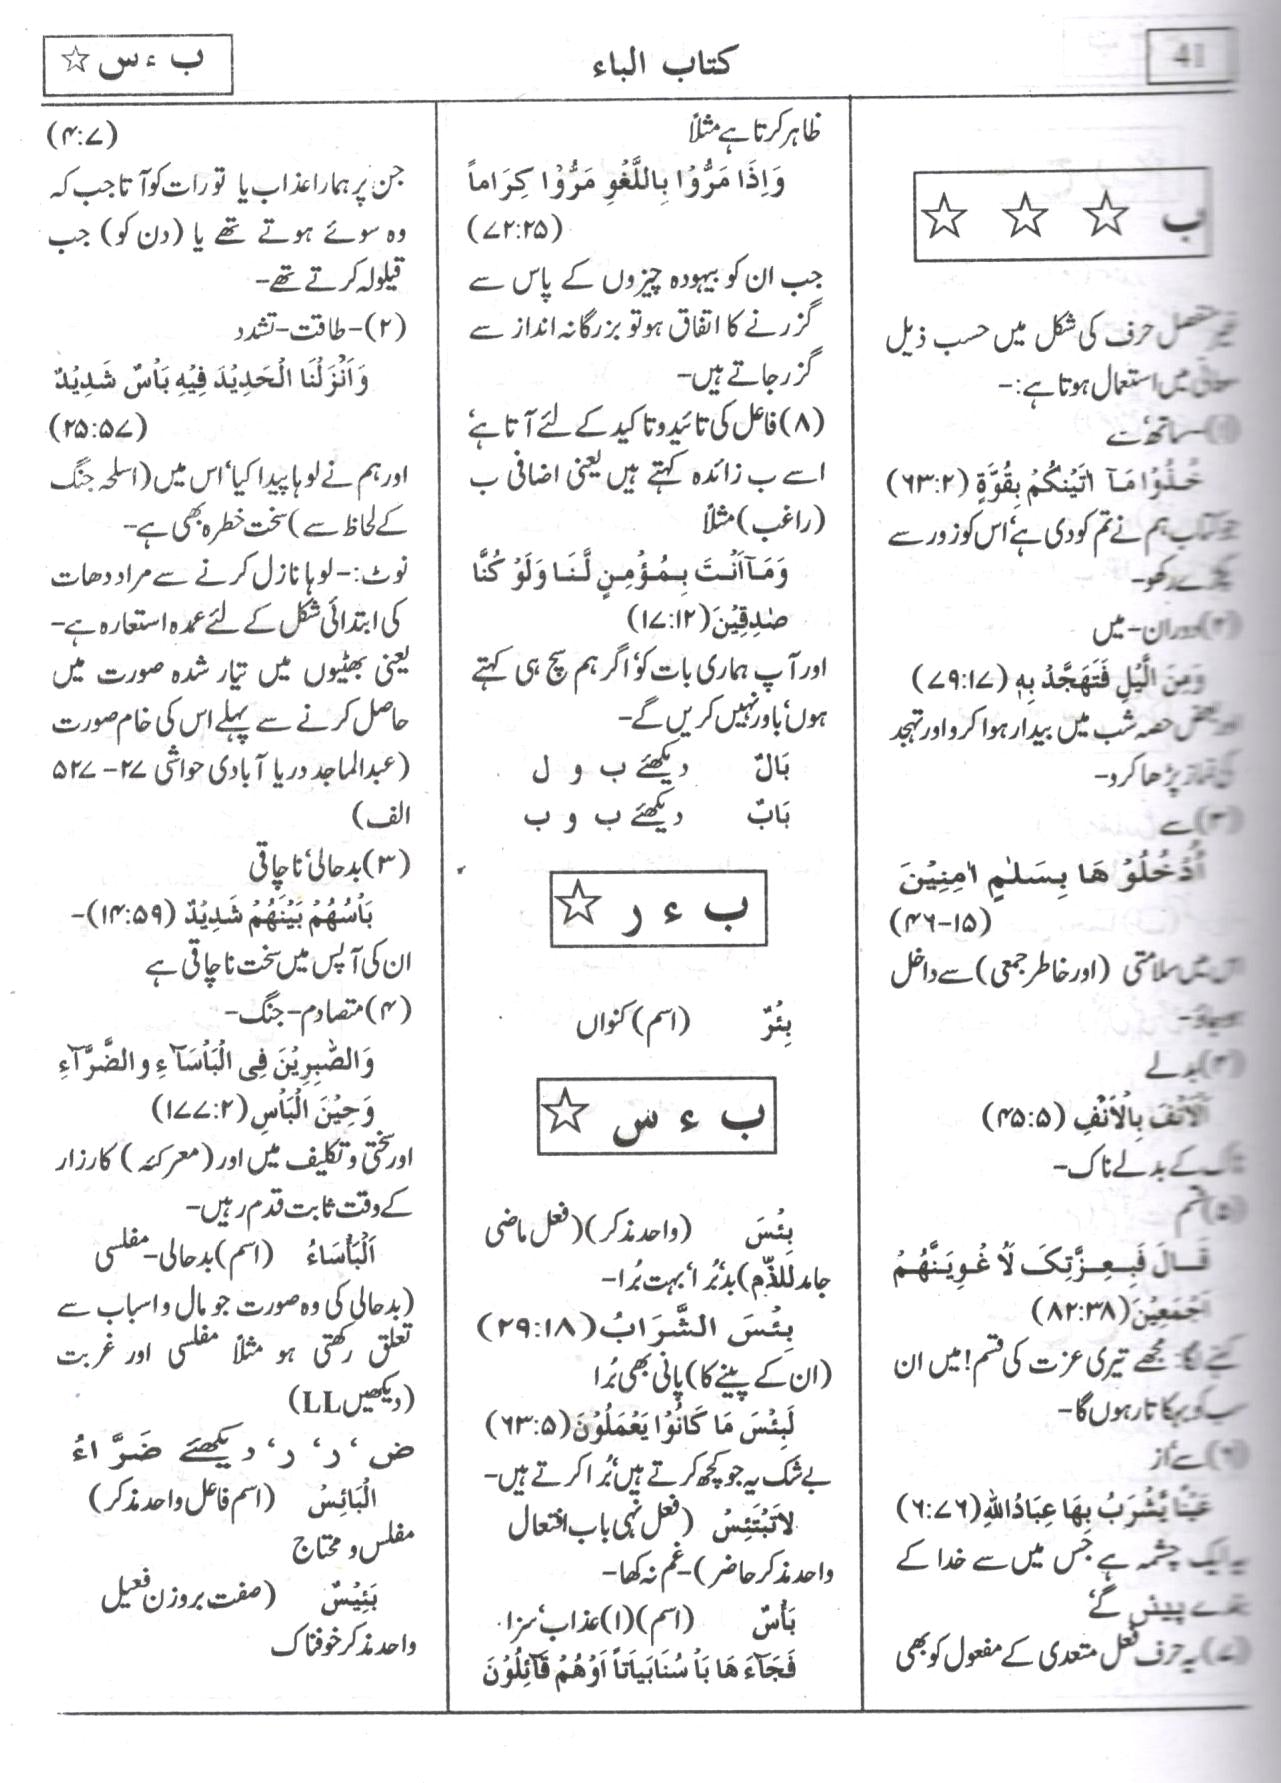 41
کتاب الباء
ب ء س ☆
ب ☆ ☆ ☆
غیر منفصل حرف کی شکل میں حسب ذیل
معانی میں استعمال ہوتا ہے:-
(۱) ساتھ‘ سے
خُذُوْا مَآ اٰتَيْنٰكُمْ بِقُوَّةٍ (۶۳:۲)
جو کتاب ہم نے تم کو دی ہے‘ اس کو زور سے
پکڑے رکھو-
(۲) دوران- میں
وَمِنَ الَّيْلِ فَتَهَجَّدْ بِهٖ (۷۹:۱۷)
اور بعض حصہ شب میں بیدار ہوا کرو اور تہجد
کی نماز پڑھا کرو-
(۳) سے
اُدْخُلُوْ هَا بِسَلٰمٍ اٰمِنِيْنَ
(۴۶-۱۵)
اس میں سلامتی (اور خاطر جمعی) سے داخل
ہو جاؤ-
(۴) بدلے
اَلْاَنْفَ بِالْاَنْفِ (۴۵:۵)
ناک کے بدلے ناک-
(۵) قسم
قَالَ فَبِعِزَّتِکَ لَاُ غْوِيَنَّهُمْ
اَجْمَعِيْنَ (۸۲:۳۸)
کہنے لگا: مجھے تیری عزت کی قسم! میں ان
سب کو بہکاتا رہوں گا-
(۶) سے‘ از
عَيْنًا يَّشْرَبُ بِهَا عِبَادُ اللهِ (۶:۷۶)
یہ ایک چشمہ ہے جس میں سے خدا کے
بندے پیئں گے‘
(۷) یہ حرف فعل متعدی کے مفعول کو بھی
ظاہر کرتا ہے مثلاً
وَاِذَا مَرُّوْا بِاللَّغْوِ مَرُّوْا كِرَاماً
(۷۲:۲۵)
جب ان کو بیہودہ چیزوں کے پاس سے
گزرنے کا اتفاق ہو تو بزرگانہ انداز سے
گزر جاتے ہیں-
(۸) فاعل کی تائید و تاکید کے لئے آتا ہے‘
اسے ب زائدہ کہتے ہیں یعنی اضافی ب
(راغب) مثلاً
وَمَآاَنْتَ بِمُؤْمِنٍ لَّنَا وَلَوْ كُنَّا
صٰدِقِيْنَ (۱۷:۱۲)
اور آپ ہماری بات کو‘ اگر ہم سچ ہی کہتے
ہوں‘ باور نہیں کریں گے-
بَالٌ دیکھئے ب و ل
بَابٌ دیکھئے ب و ب
ب ء ر ☆
بِئْرٌ (اسم) کنواں
ب ء س ☆
بِئْسَ (واحد مذکر) (فعل ماضی
جامد للذّم) بد‘ بُرا‘ بہت بُرا-
بِئْسَ الشَّرَابُ (۲۹:۱۸)
(ان کے پینے کا) پانی بھی بُرا
لَبِئْسَ مَا كَانُوْا يَعْمَلُوْنَ (۶۳:۵)
بے شک یہ جو کچھ کرتے ہیں‘ بُرا کرتے ہیں-
لاَتَبْتَئِسْ (فعل نہی باب افتعال
واحد مذکر حاضر)- غم نہ کھا-
بَأْسٌ (اسم) (ا) عذاب‘ سزا
فَجَآءَ هَا بَاْ سُنَا بَيَاتاً اَوْ هُمْ قَآئِلُوْنَ
(۴:۷)
جن پر ہمارا عذاب یا تو رات کو آتا جب کہ
وہ سوئے ہوتے تھے یا (دن کو) جب
قیلولہ کرتے تھے-
(۲)- طاقت- تشدد
وَاَنْزَلْنَا الْحَدِيْدَ فِيْهِ بَاْسٌ شَدِيْدٌ
(۲۵:۵۷)
اور ہم نے لوہا پیدا کیا‘ اس میں (اسلحہ جنگ
کے لحاظ سے) سخت خطرہ بھی ہے-
نوٹ:- لوہا نازل کرنے سے مراد دھات
کی ابتدائی شکل کے لئے عمدہ استعارہ ہے-
یعنی بھٹیوں میں تیار شدہ صورت میں
حاصل کرنے سے پہلے اس کی خام صورت
(عبدالماجد دریا آبادی حواشی ۲۷- ۵۲۷
الف)
(۳) بدحالی‘ ناچاقی
بَاْسُهُمْ بَيْنَهُمْ شَدِيْدٌ (۱۴:۵۹)-
ان کی آپس میں سخت ناچاقی ہے
(۴) متصادم- جنگ-
وَالصّٰبِرِيْنَ فِى الْبَاْسَآءِ وَالضَّرَّآءِ
وَحِيْنَ الْبَاْسِ (۱۷۷:۲)
اور سختی و تکلیف میں اور (معرکئہ) کارزار
کے وقت ثابت قدم رہیں-
اَلْبَأْسَاءُ (اسم) بدحالی- مفلسی
(بدحالی کی وہ صورت جو مال و اسباب سے
تعلق رکھتی ہو مثلاً مفلسی اور غربت
(دیکھیں LL)
ض‘ ر‘ ر‘ دیکھئے ضَرَّاءُ
الْبَائِسُ (اسم فاعل واحد مذکر)
مفلس و محتاج
بَئِيْسٌ (صفت بروزن فعیل
واحد مذکر خوفناک